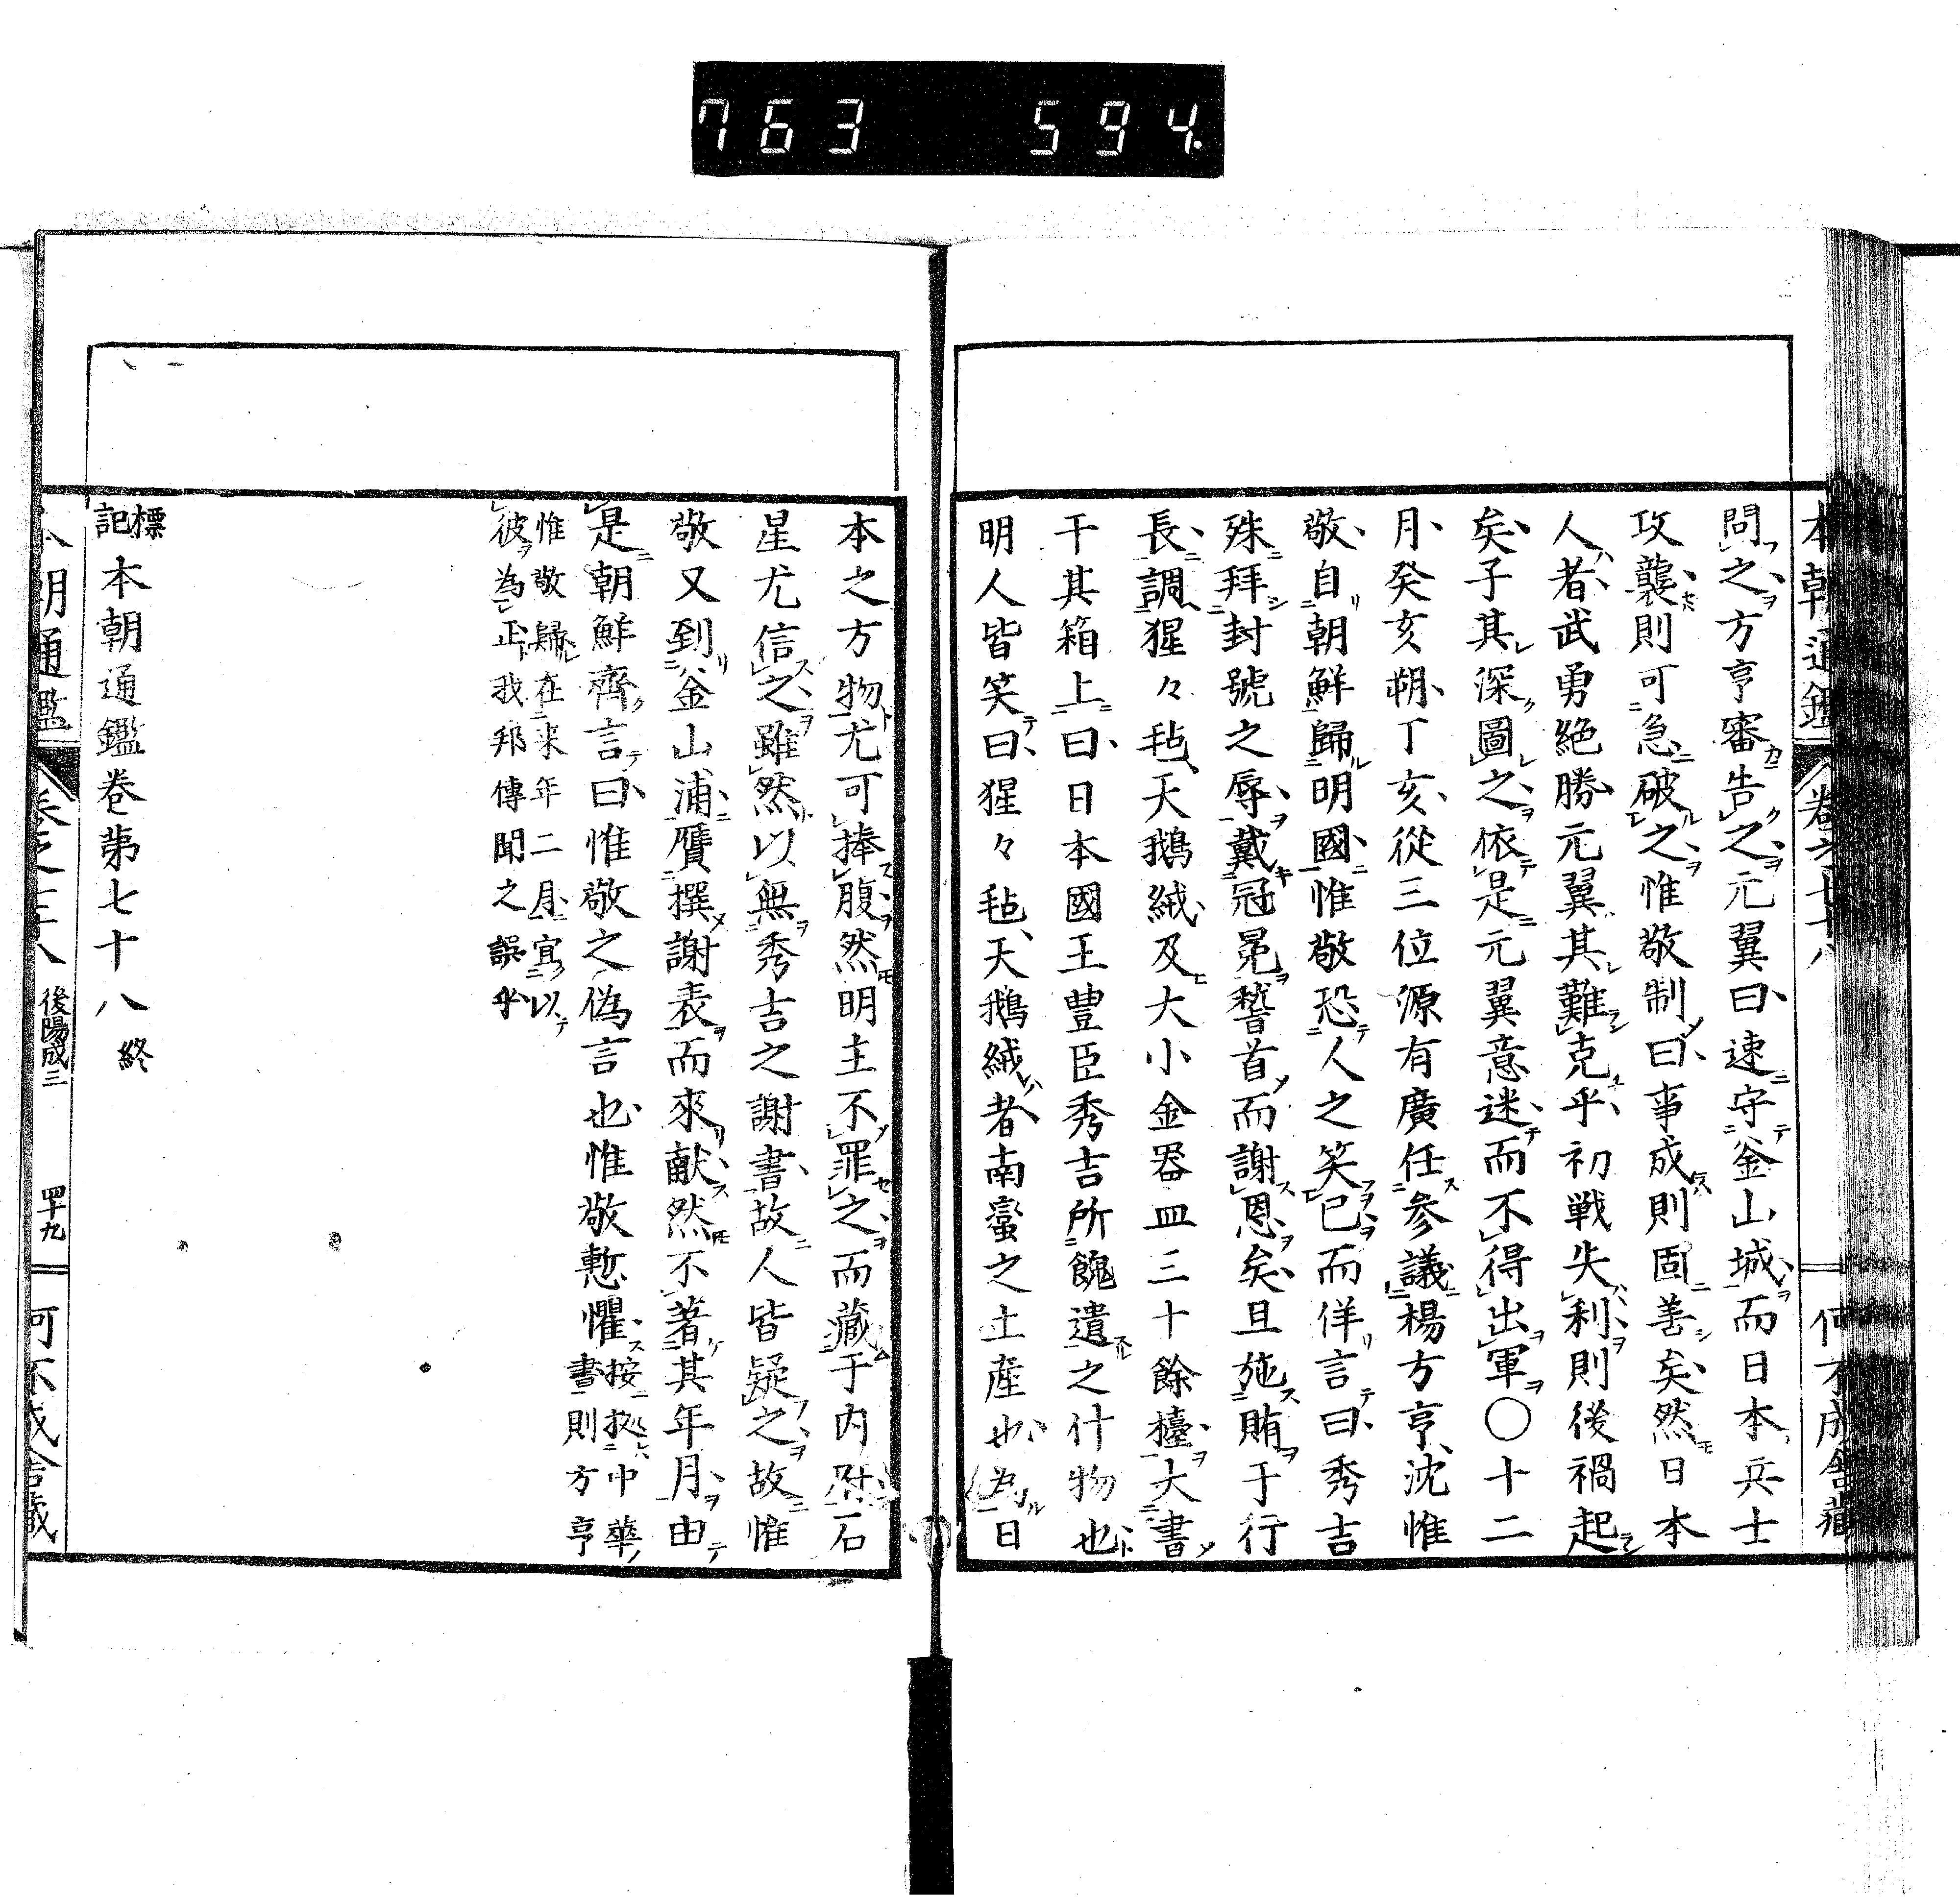 763 594
本朝通鑑 卷之七十八
問之方亨審告之元翼曰速守釜山城而日本兵士
攻襲則可急破之惟敬制曰事成則固善矣然日本
人者武勇絶勝元翼其難克乎初戦失利則後禍起
矣子其深圖之依是元翼意迷而不得出軍〇十二
月癸亥朔丁亥從三位源有廣任参議楊方亨沈惟
敬自朝鮮歸明國惟敬恐人之笑已而佯言曰秀吉
殊拜封號之辱戴冠冕 首而謝恩矣且施賄于行
長調猩々毡天鵝絨及大小金器皿三十餘檯大書
干其箱上曰日本國王豊臣秀吉所餽遺之什物也
明人皆笑曰猩々毡天鵝絨者南蠻之土産也為日
本之方物尤可捧腹然明主不罪之而藏于内府石
星尤信之雖然以無秀吉之謝書故人皆疑之故惟
敬又到釜山浦贋撰謝表而來献然不著其年月由
是朝鮮齊言曰惟敬之偽言也惟敬慙懼
按 中華
書則方亨
惟敬歸在来年二月宜以
彼為正我邦傳聞之誤乎
標記 本朝通鑑卷第七十八 終
本朝通鑑 卷之七十八 後陽成三 四十九